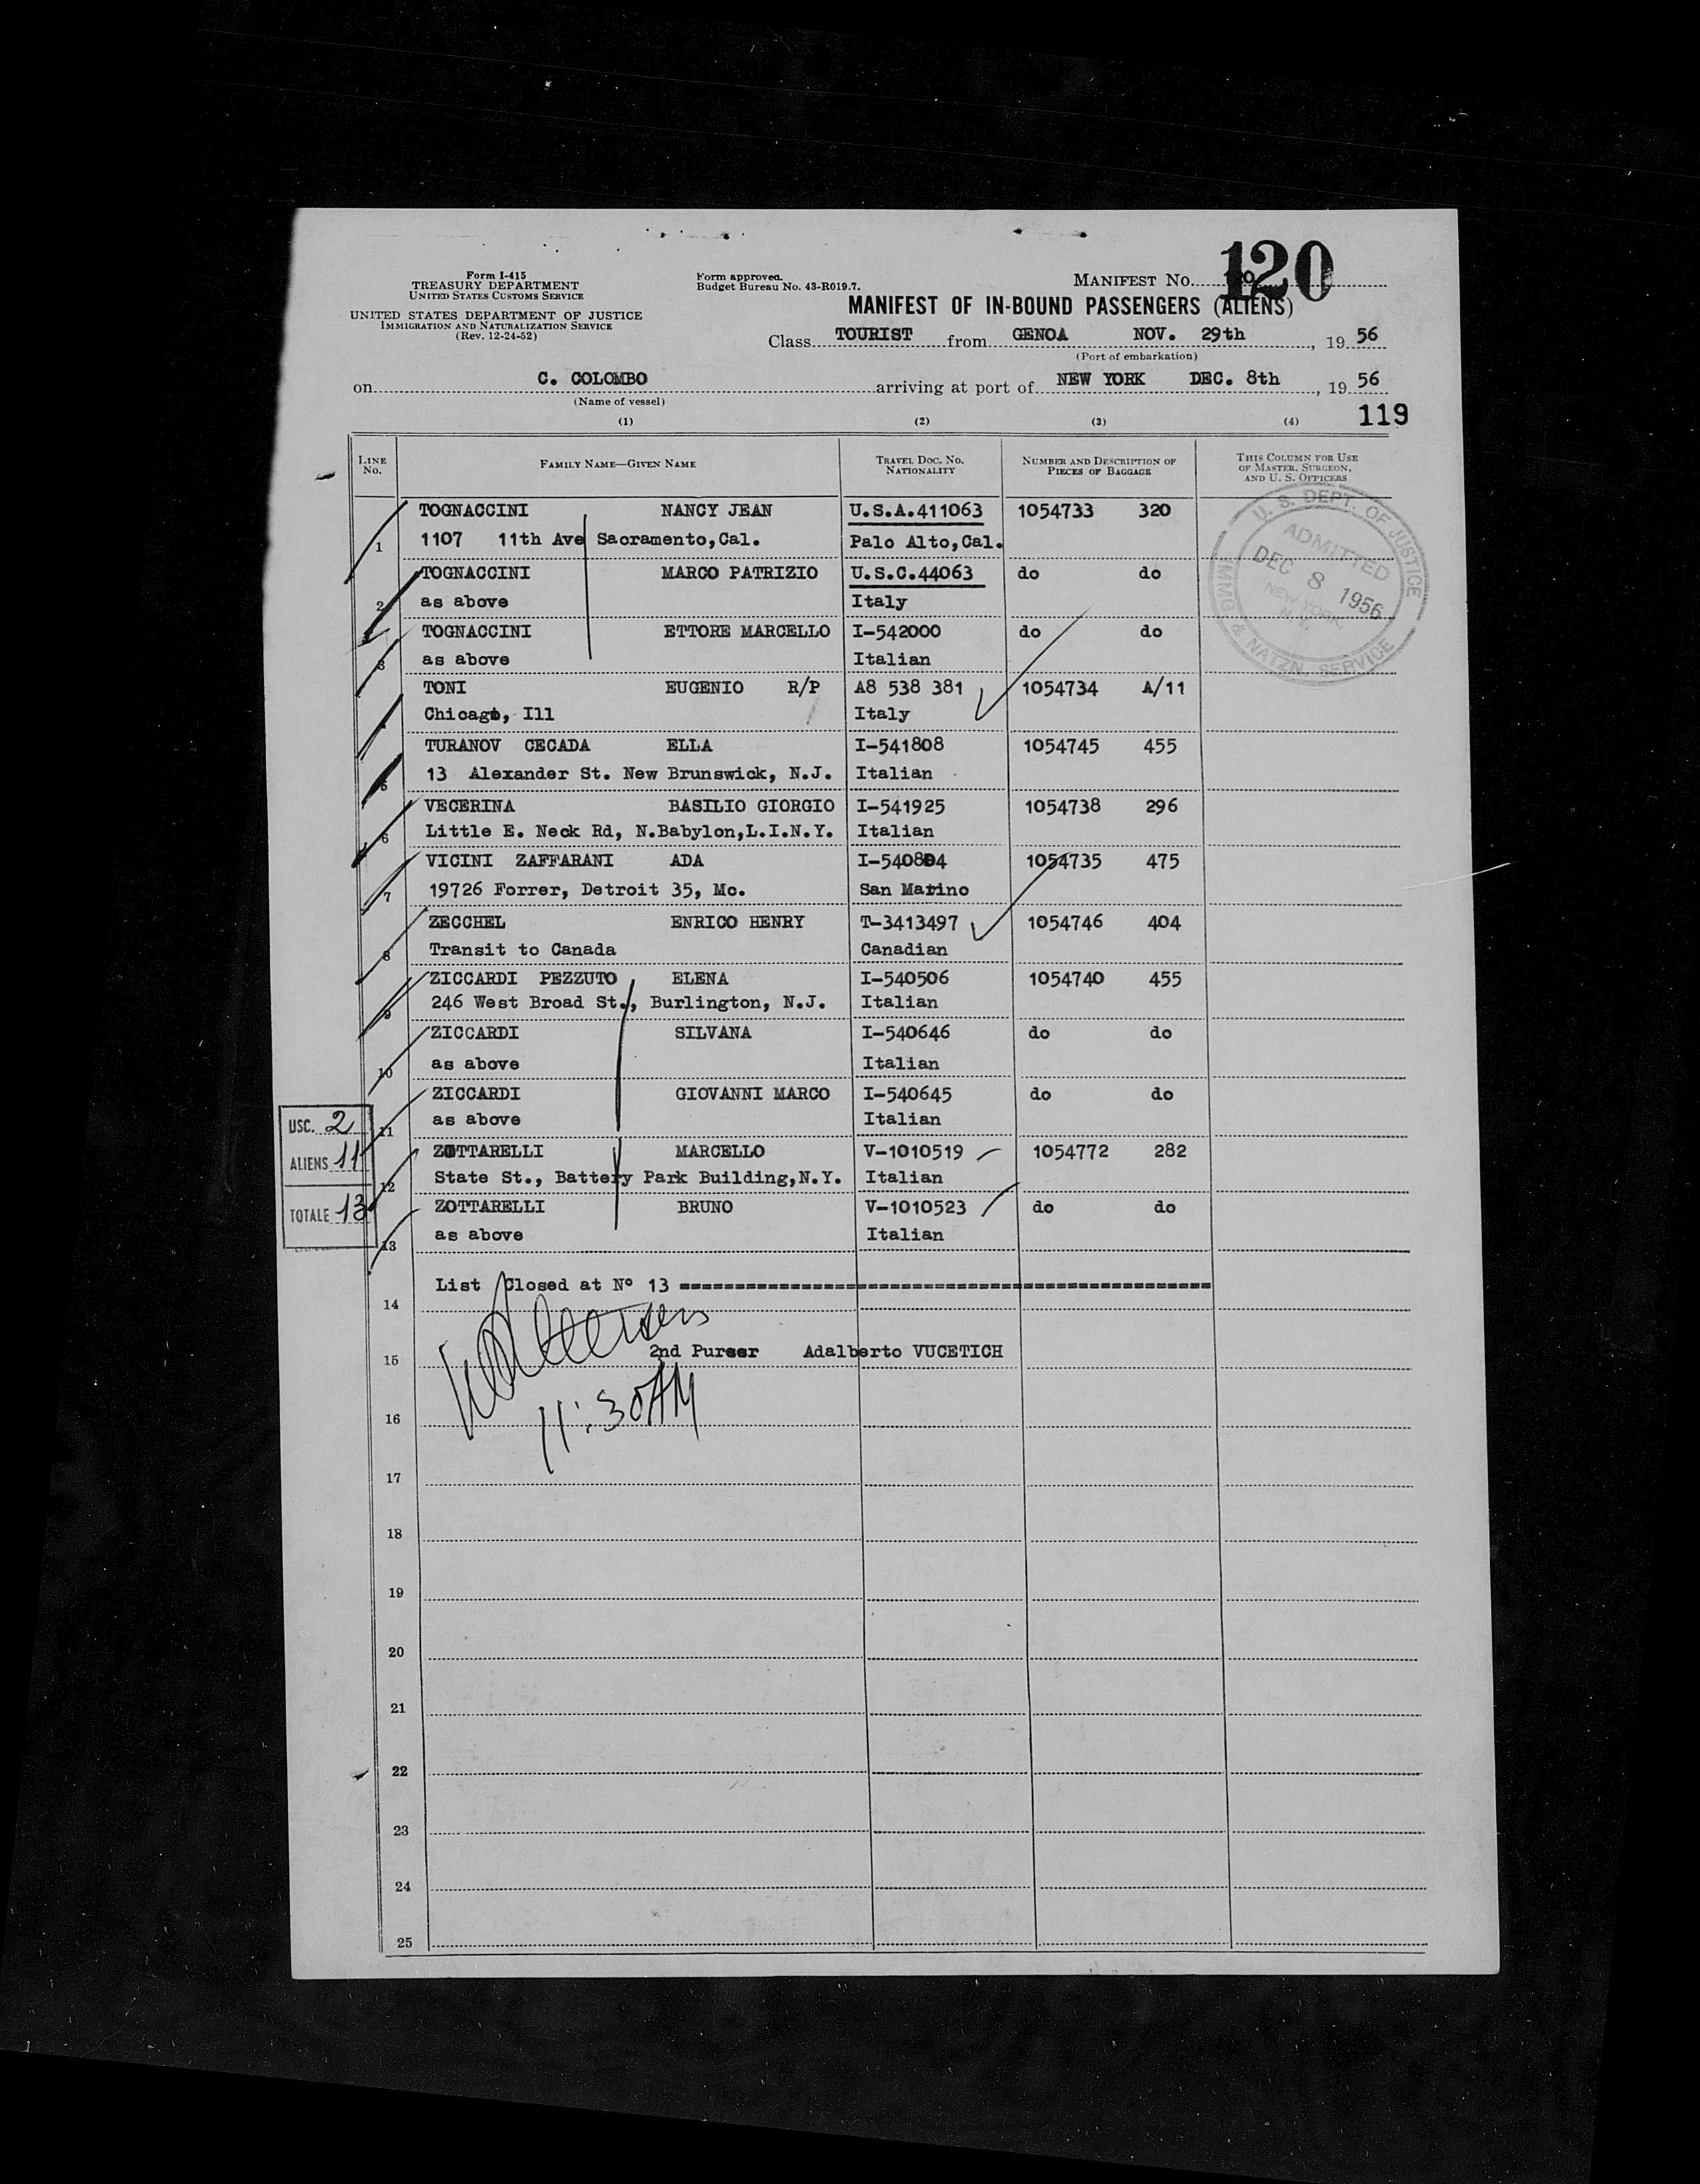 Form I-415
TREASURY DEPARTMENT
UNITED STATES CUSTOMS SERVICE
UNITED STATES DEPARTMENT OF JUSTICE
IMMIGRATION AND NATURALIZATION SERVICE
(Rev. 12-24-52)
Form approved.
Budget Bureau No. 43-R019.7.
MANIFEST No. 120
MANIFEST OF IN-BOUND PASSENGERS (ALIENS)
Class TOURIST from GENOA NOV. 29th, 19 56
(Port of embarkation)
on C. COLOMBO arriving at port of NEW YORK DEC. 8th, 19 56
(Name of vessel)
119
(1) (2) (3) (4)
LINE No. FAMILY NAME—GIVEN NAME TRAVEL DOC. No. NATIONALITY NUMBER AND DESCRIPTION OF PIECES OF BAGGAGE THIS COLUMN FOR USE OF MASTER, SURGEON, AND U. S. OFFICERS
1 TOGNACCINI NANCY JEAN U.S.A.411063 1054733 320
1107 11th Ave Sacramento,Cal. Palo Alto,Cal.
2 TOGNACCINI MARCO PATRIZIO U.S.C.44063 do do
as above Italy
3 TOGNACCINI ETTORE MARCELLO I-542000 do do
as above Italian
TONI EUGENIO R/P A8 538 381 1054734 A/11
Chicago, Ill Italy
5 TURANOV CECADA ELLA I-541808 1054745 455
13 Alexander St. New Brunswick, N.J. Italian
6 VECERINA BASILIO GIORGIO I-541925 1054738 296
Little E. Neck Rd, N.Babylon,L.I.N.Y. Italian
7 VICINI ZAFFARANI ADA 1054735 475
19726 Forrer, Detroit 35, Mc. San Marino
8 ZECCHEL ENRICO HENRY T-3413497 1054746 404
Transit to Canada Canadian
9 ZICCARDI PEZZUTO ELENA I-540506 1054740 455
246 West Broad St., Burlington, N.J. Italian
10 ZICCARDI SILVANA I-540646 do do
as above Italian
11 ZICCARDI GIOVANNI MARCO I-540645 do do
as above Italian
12 ZOTTARELLI MARCELLO V-1010519 1054772 282
State St., Battery Park Building,N.Y. Italian
13 ZOTTARELLI BRUNO V-1010523 do do
as above Italian
U. S. DEPT. OF JUSTICE
ADMITTED
DEC 8 1956
NEW YORK, N. Y.
IMMG & NATZN. SERVICE
USC. 2
ALIENS 11
TOTALE 13
14 List Closed at Nº 13
15 2nd Purser Adalberto VUCETICH
11:30AM
16
17
18
19
20
21
22
23
24
25